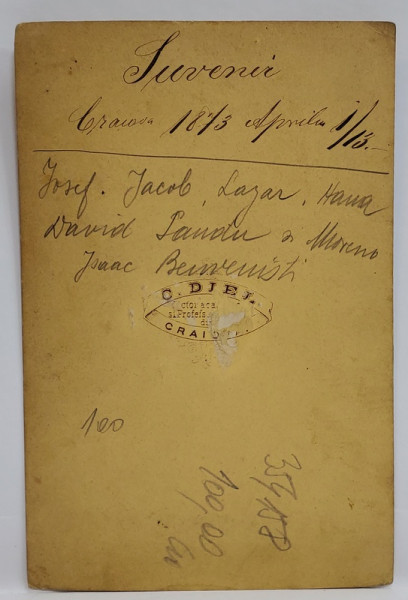 Suvenir
Craiova 1873 Aprilie 1/13.
Josef. Jacob, Lazar, Hana
David Sandu si Moreno
Isaac Benvenisti
C. DJEJ
si Profes
CRAIO
100
100,00
35 158